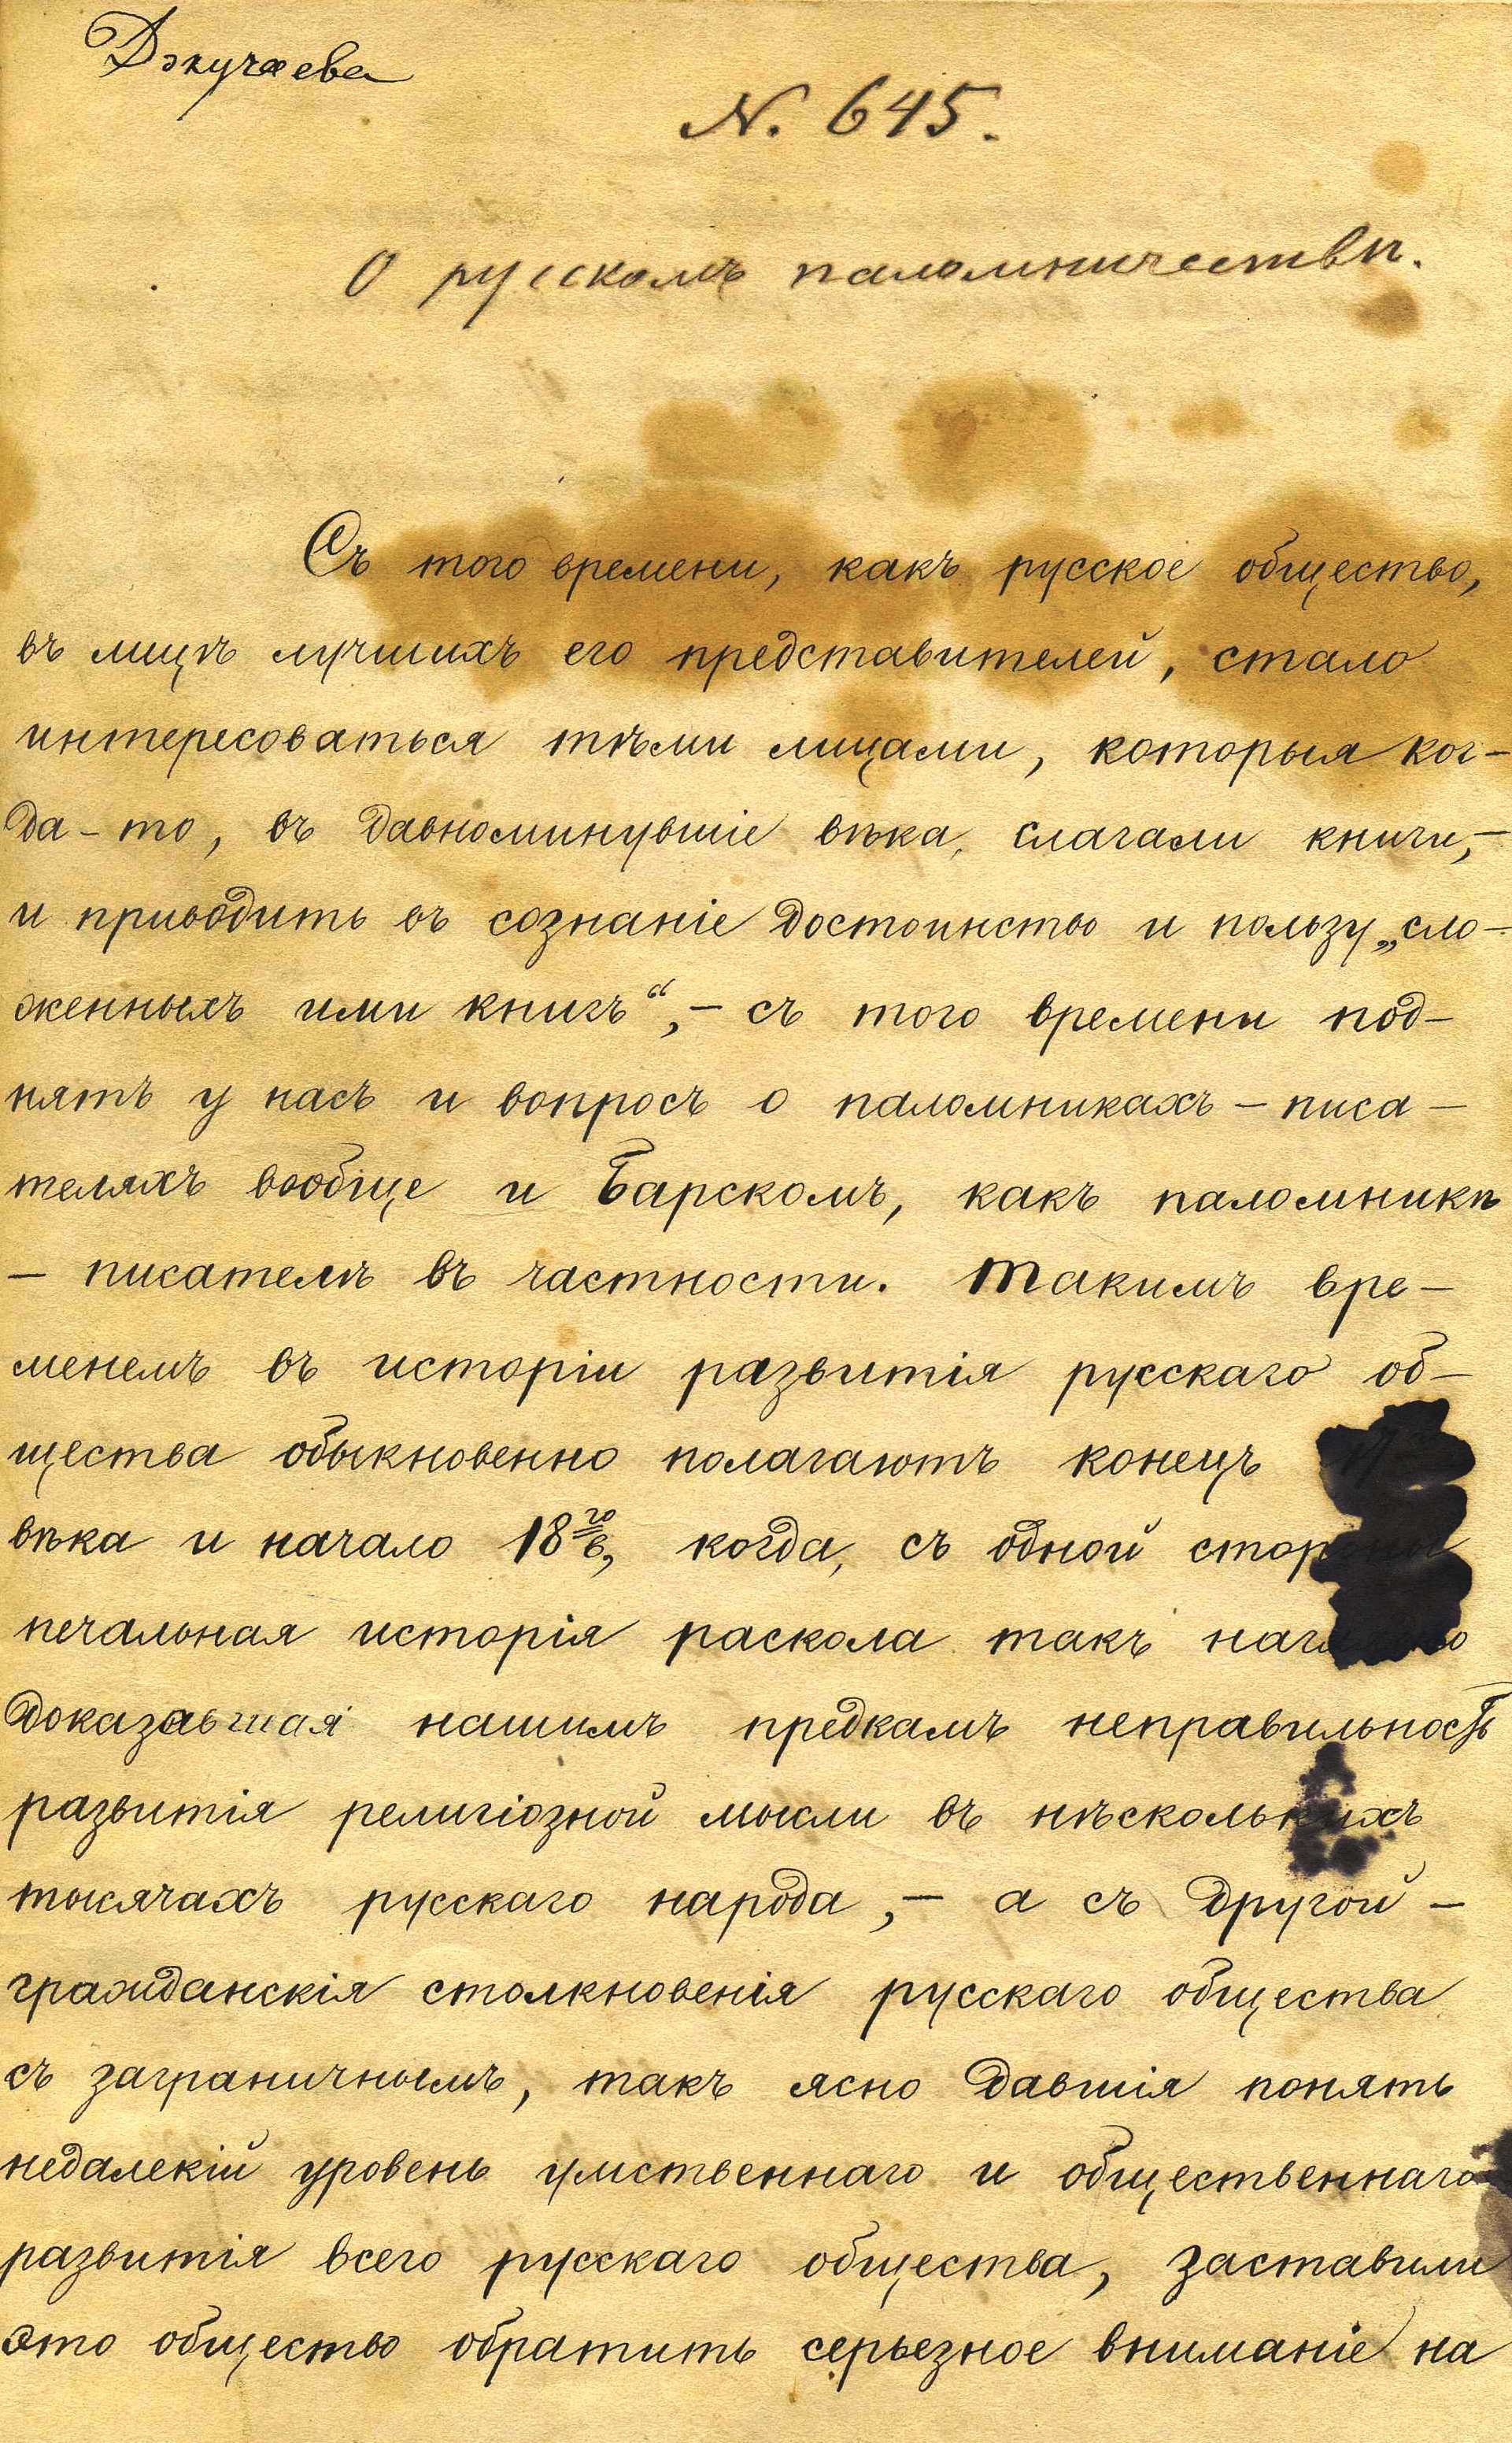 Докучаева
N. 645.
О русскомъ паломничествѣ.
Съ того времени, какъ русское общество,
въ лицѣ лучшихъ его представителей, стало
интересоваться тѣми лицами, которыя ког-
да-то, въ давноминувшіе вѣка, слагали книги,-
и приводить въ сознаніе достоинство и пользу „сло-
женныхъ ими книгъ“,- съ того времени под-
нятъ у насъ и вопросъ о паломникахъ-писа-
теляхъ вообще и Барскомъ, какъ паломникѣ
- писателѣ въ частности. Такимъ вре-
менемъ въ исторіи развитія русскаго об-
щества обыкновенно полагаютъ конецъ
вѣка и начало 18го в., когда, съ одной стороны
печальная исторія раскола такъ
доказавшая нашимъ предкамъ неправильность
развитія религіозной мысли въ нѣсколькихъ
тысячахъ русскаго народа,- а съ другой -
гражданскія столкновенія русскаго общества
съ заграничнымъ, такъ ясно давшія понять
недалекій уровень умственнаго и общественнаго
развитія всего русскаго общества, заставили
это общество обратить серьезное вниманіе на